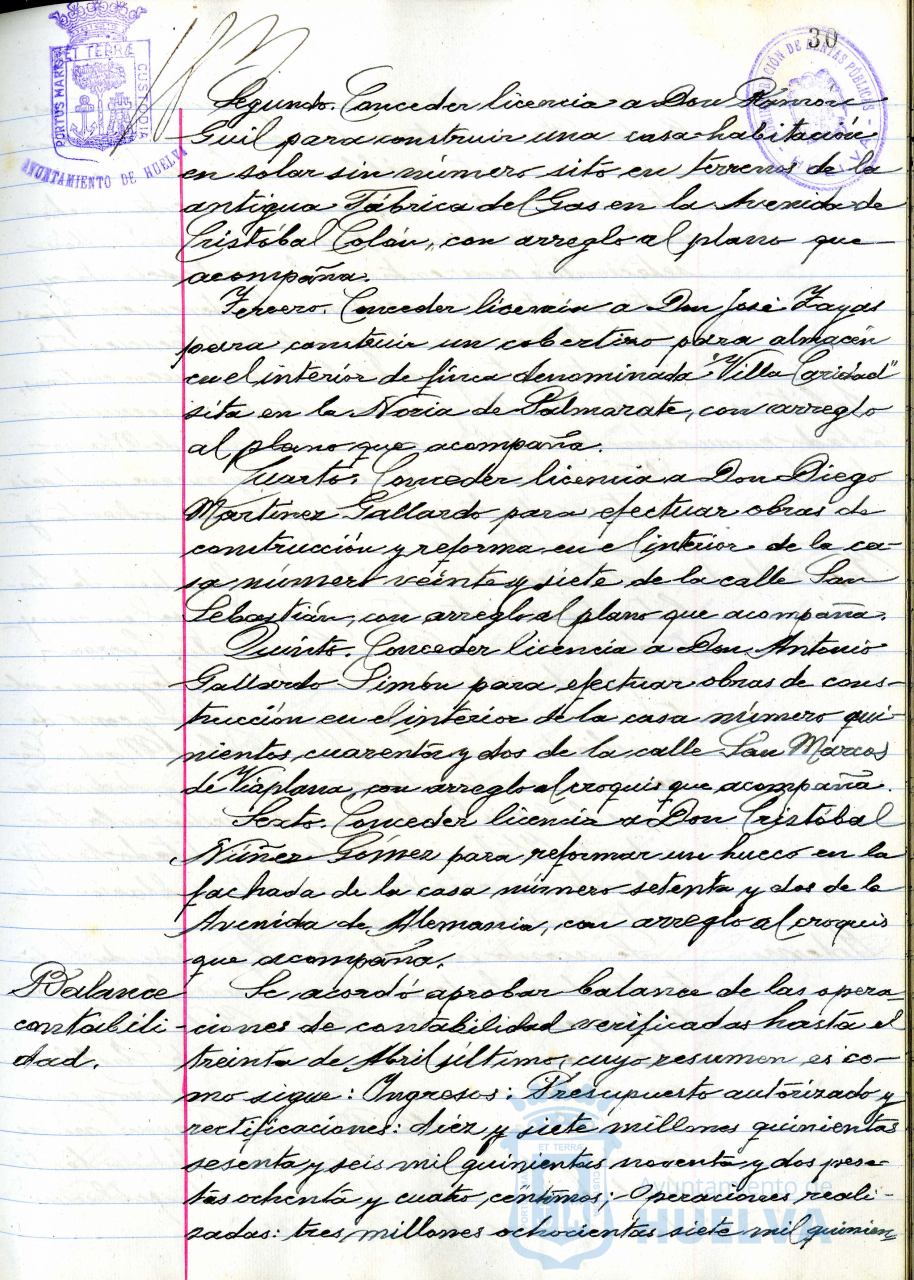 30
ET TERRÆ
PORTUS MARIS
CUSTODIA
AYUNTAMIENTO DE HUELVA
Segundo. Conceder licencia a Don Ramon
Guil para construir una casa-habitación
en solar sin número sito en terrenos de la
antigua Fábrica del Gas en la Avenida de
Cristóbal Colón, con arreglo al plano que
acompaña.
Tercero. Conceder licencia a Don José Zayas
para construir un cobertizo para almacén
en el interior de finca denominada "Villa Caridad"
sita en la Noria de Palmarate, con arreglo
al plano que acompaña.
Cuarto. Conceder licencia a Don Diego
Martínez Gallardo para efectuar obras de
construcción y reforma en el interior de la ca-
sa número veinte y siete de la calle San
Sebastián, con arreglo al plano que acompaña.
Quinto. Conceder licencia a Don Antonio
Gallardo Simón para efectuar obras de cons-
trucción en el interior de la casa número qui-
nientos cuarenta y dos de la calle San Marcos
de Viaplana, con arreglo al croquis que acompaña.
Sexto. Conceder licencia a Don Cristóbal
Núñez Gómez para reformar un hueco en la
fachada de la casa número setenta y dos de la
Avenida de Alemania, con arreglo al croquis
que acompaña.
Balance
contabili-
dad.
Se acordó aprobar balance de las opera-
ciones de contabilidad verificadas hasta el
treinta de Abril último, cuyo resumen es co-
mo sigue: Ingresos: Presupuesto autorizado y
rectificaciones: diez y siete millones quinientas
sesenta y seis mil quinientas noventa y dos pese-
tas ochenta y cuatro céntimos; Operaciones reali-
zadas: tres millones ochocientas siete mil quinien-
Ayuntamiento de
HUELVA